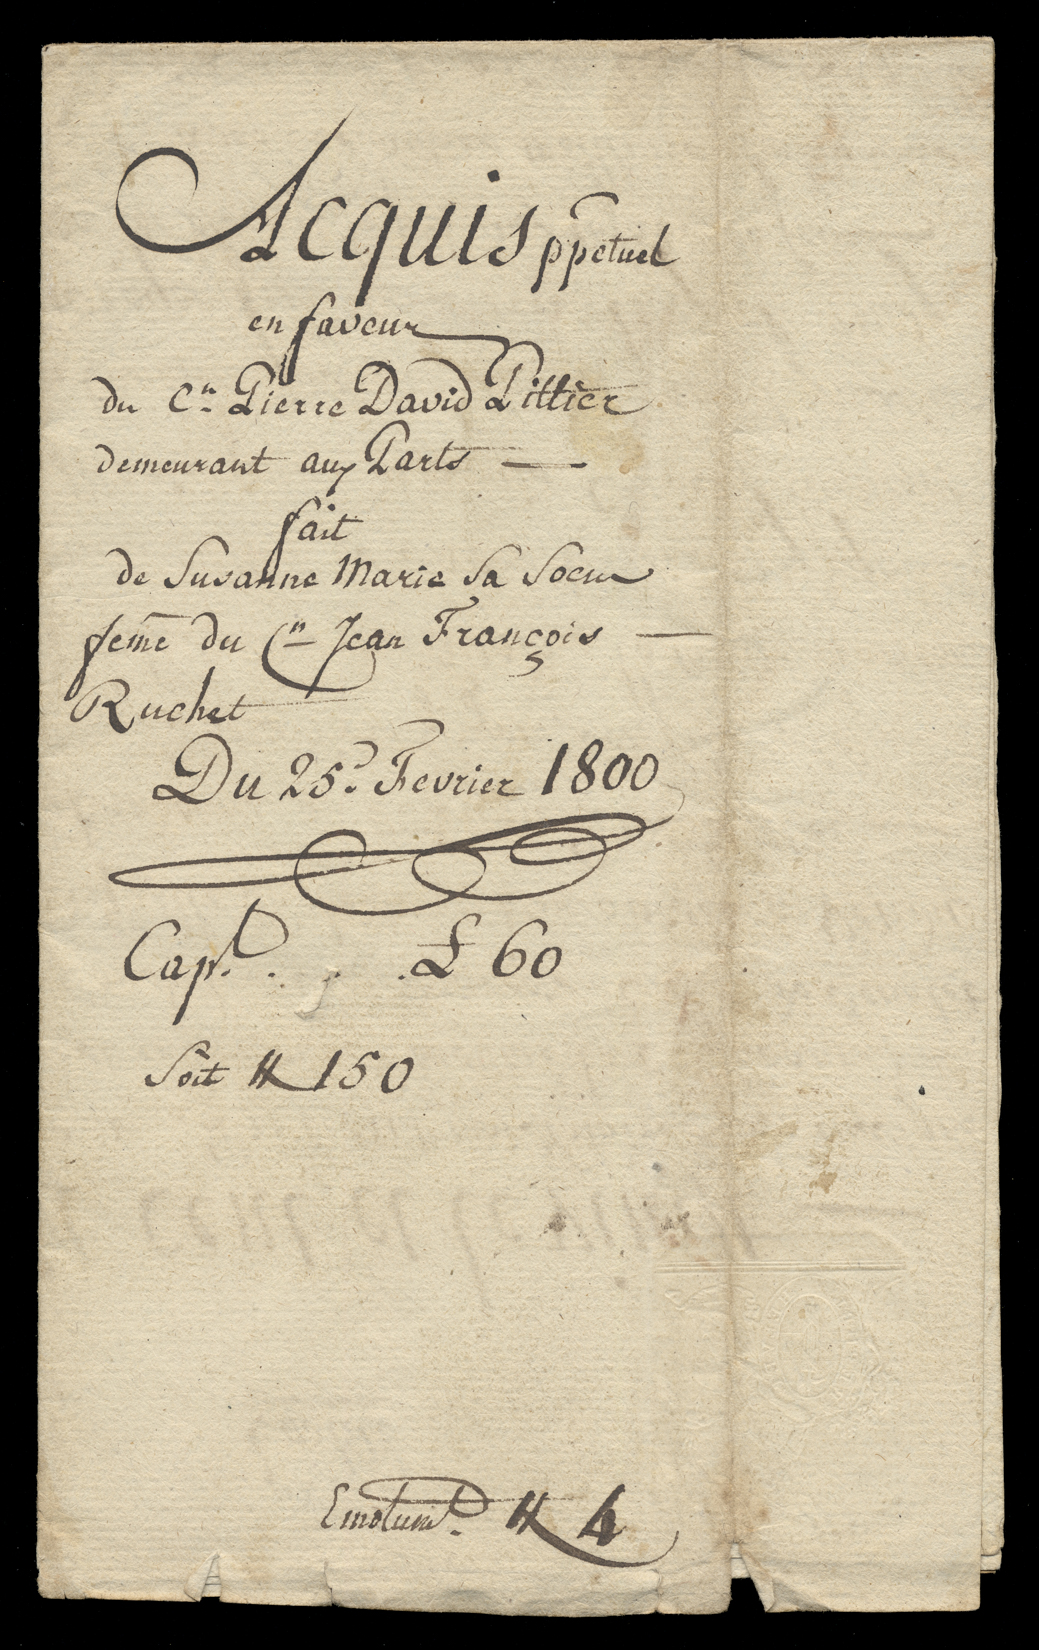 Acquis ppetuel
en faveur
du Cn. Pierre David Pittier
demeurant aux Parts
fait
de Susanne Marie Sa Soeur
feme du Cn Jean François
Ruchet
Du 25e. Fevrier 1800
Capl. . . . £ 60
Soit ₶ 150
Emolumt. ₶ 4